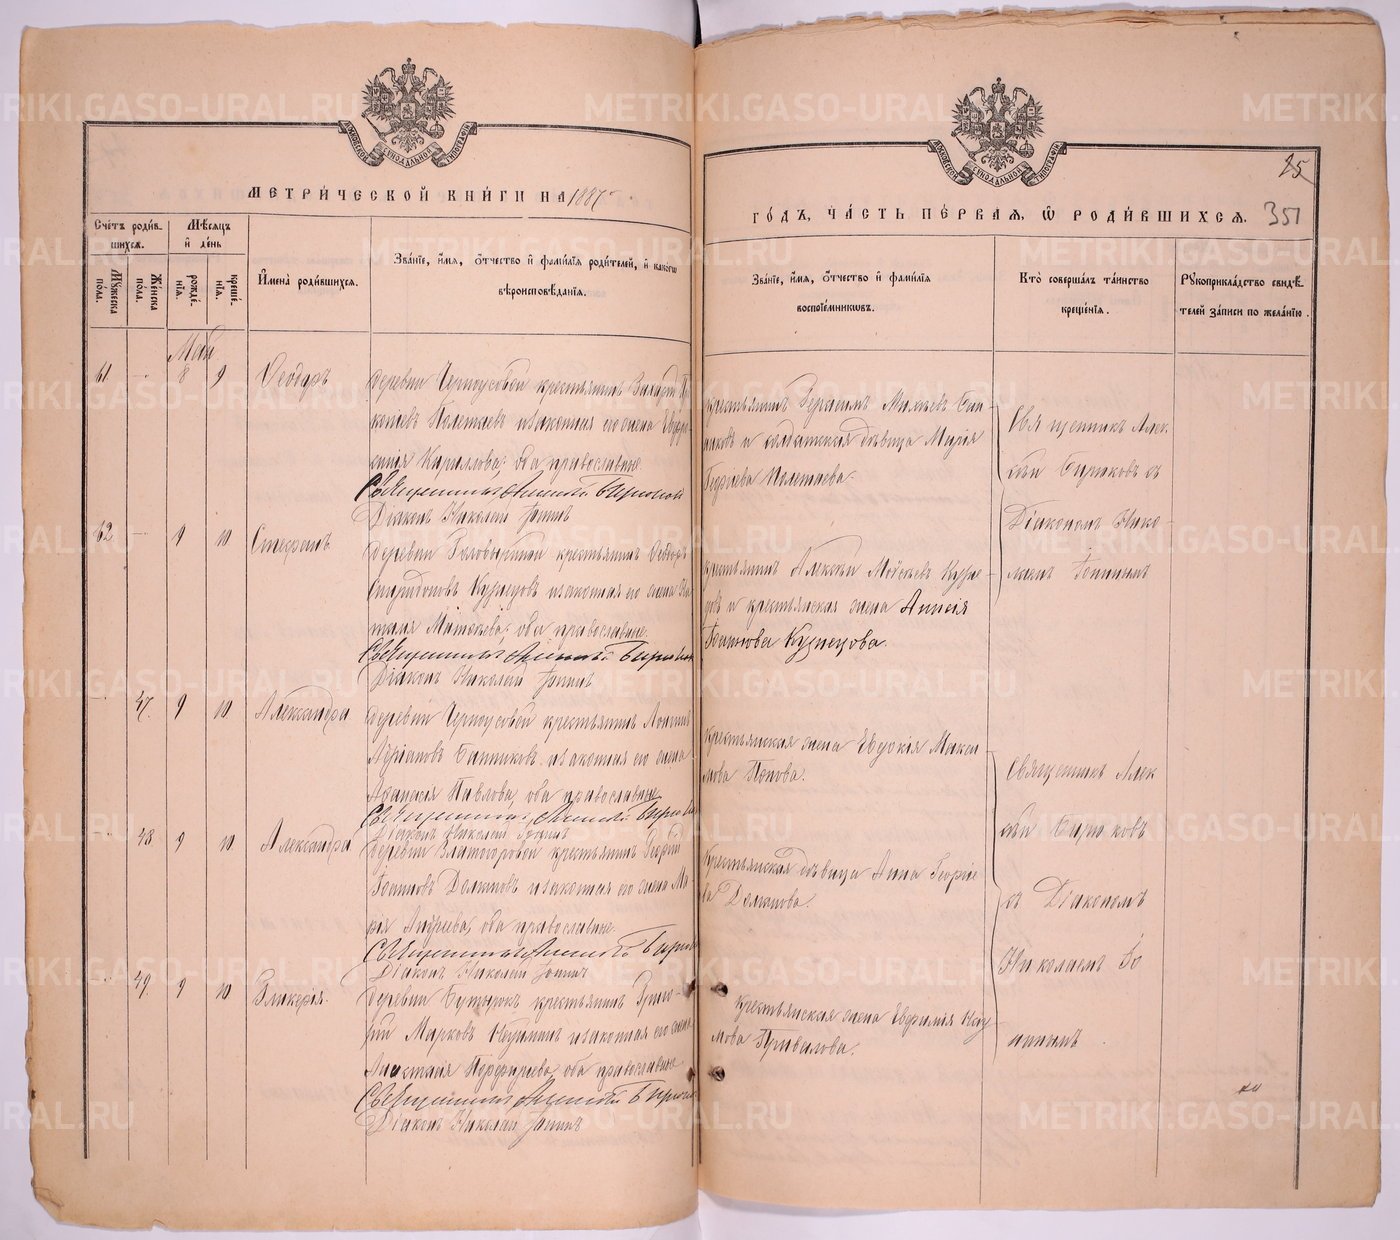 МЕТРИ́ЧЕСКОЙ КНИ́ГИ НА 1887
ГО́ДЪ, ЧА́СТЬ ПЕ́РВАЯ, Ѡ РОДИ́ВШИХСЯ.
25
351
Сче́тъ роди́в
шихся.
Мѣ́сяцъ
и́ де́нь
Му́жеска
пола.
Же́нска
пола.
рожде́
нїя.
креще́
нїя.
И́мена̀ роди́вшихся.
Зва́нїе, и́мя, о́тчество и́ фами́лїя роди́телей, и́ како́гѡ
вѣроисповѣ́данїя.
Зва́нїе, и́мя, о́тчество и́ фами́лїя
воспрїе́мникѡвъ.
Кто̀ соверша́лъ та́инство
креще́нїя.
Рукоприкла́дство свидѣ́
телей за́писи по жела́нїю.
Май
61 8 9 Ѳеодоръ
деревни Черноусовой крестьянинъ
Полетаевъ и законная его жена
Кириллова, оба православные.
Священникъ Алексѣй Бирюковъ
Діаконъ Николай Іонинъ
крестьянинъ Герасимъ
и солдатская дѣвица Марія
Георгіева Полетаева.
Священникъ Алек
сѣй Бирюковъ съ
Діакономъ Нико
лаемъ Іонинымъ
62 9 10 Стефанъ
деревни крестьянинъ Ѳедоръ
Спиридоновъ Кузнецовъ и законная его жена На
талія оба православные.
Священникъ Алексѣй Бирюковъ
Діаконъ Николай Іонинъ
крестьянинъ Алексѣй Моисеевъ Кузне
цовъ и крестьянская жена Анисія
Іоаннова Кузнецова.
47. 9 10 Александра
деревни Черноусовой крестьянинъ Логинъ
Адріановъ Банниковъ и законная его жена
Аѳанасія Павлова, оба православные.
Священникъ Алексѣй Бирюковъ
Діаконъ Николай Іонинъ
крестьянская жена Евдокія Макси
мова Попова.
Священникъ Алек
сѣй Бирюковъ
съ Діакономъ
Николаемъ Іо
нинымъ
48 9 10 Александра
деревни Златогоровой крестьянинъ Георгій
Іоанновъ и законная его жена Ма
рія Андреева, оба православные.
Священникъ Алексѣй Бирюковъ
Діаконъ Николай Іонинъ
крестьянская дѣвица Анна Георгіе
ва
49. 9 10 Гликерія.
деревни Бутырокъ крестьянинъ Григо
рій Марковъ и законная его жена
Анастасія Порфирьева, оба православные
Священникъ Алексѣй Бирюковъ
Діаконъ Николай Іонинъ
крестьянская жена Евфимія Нау
мова Привалова.